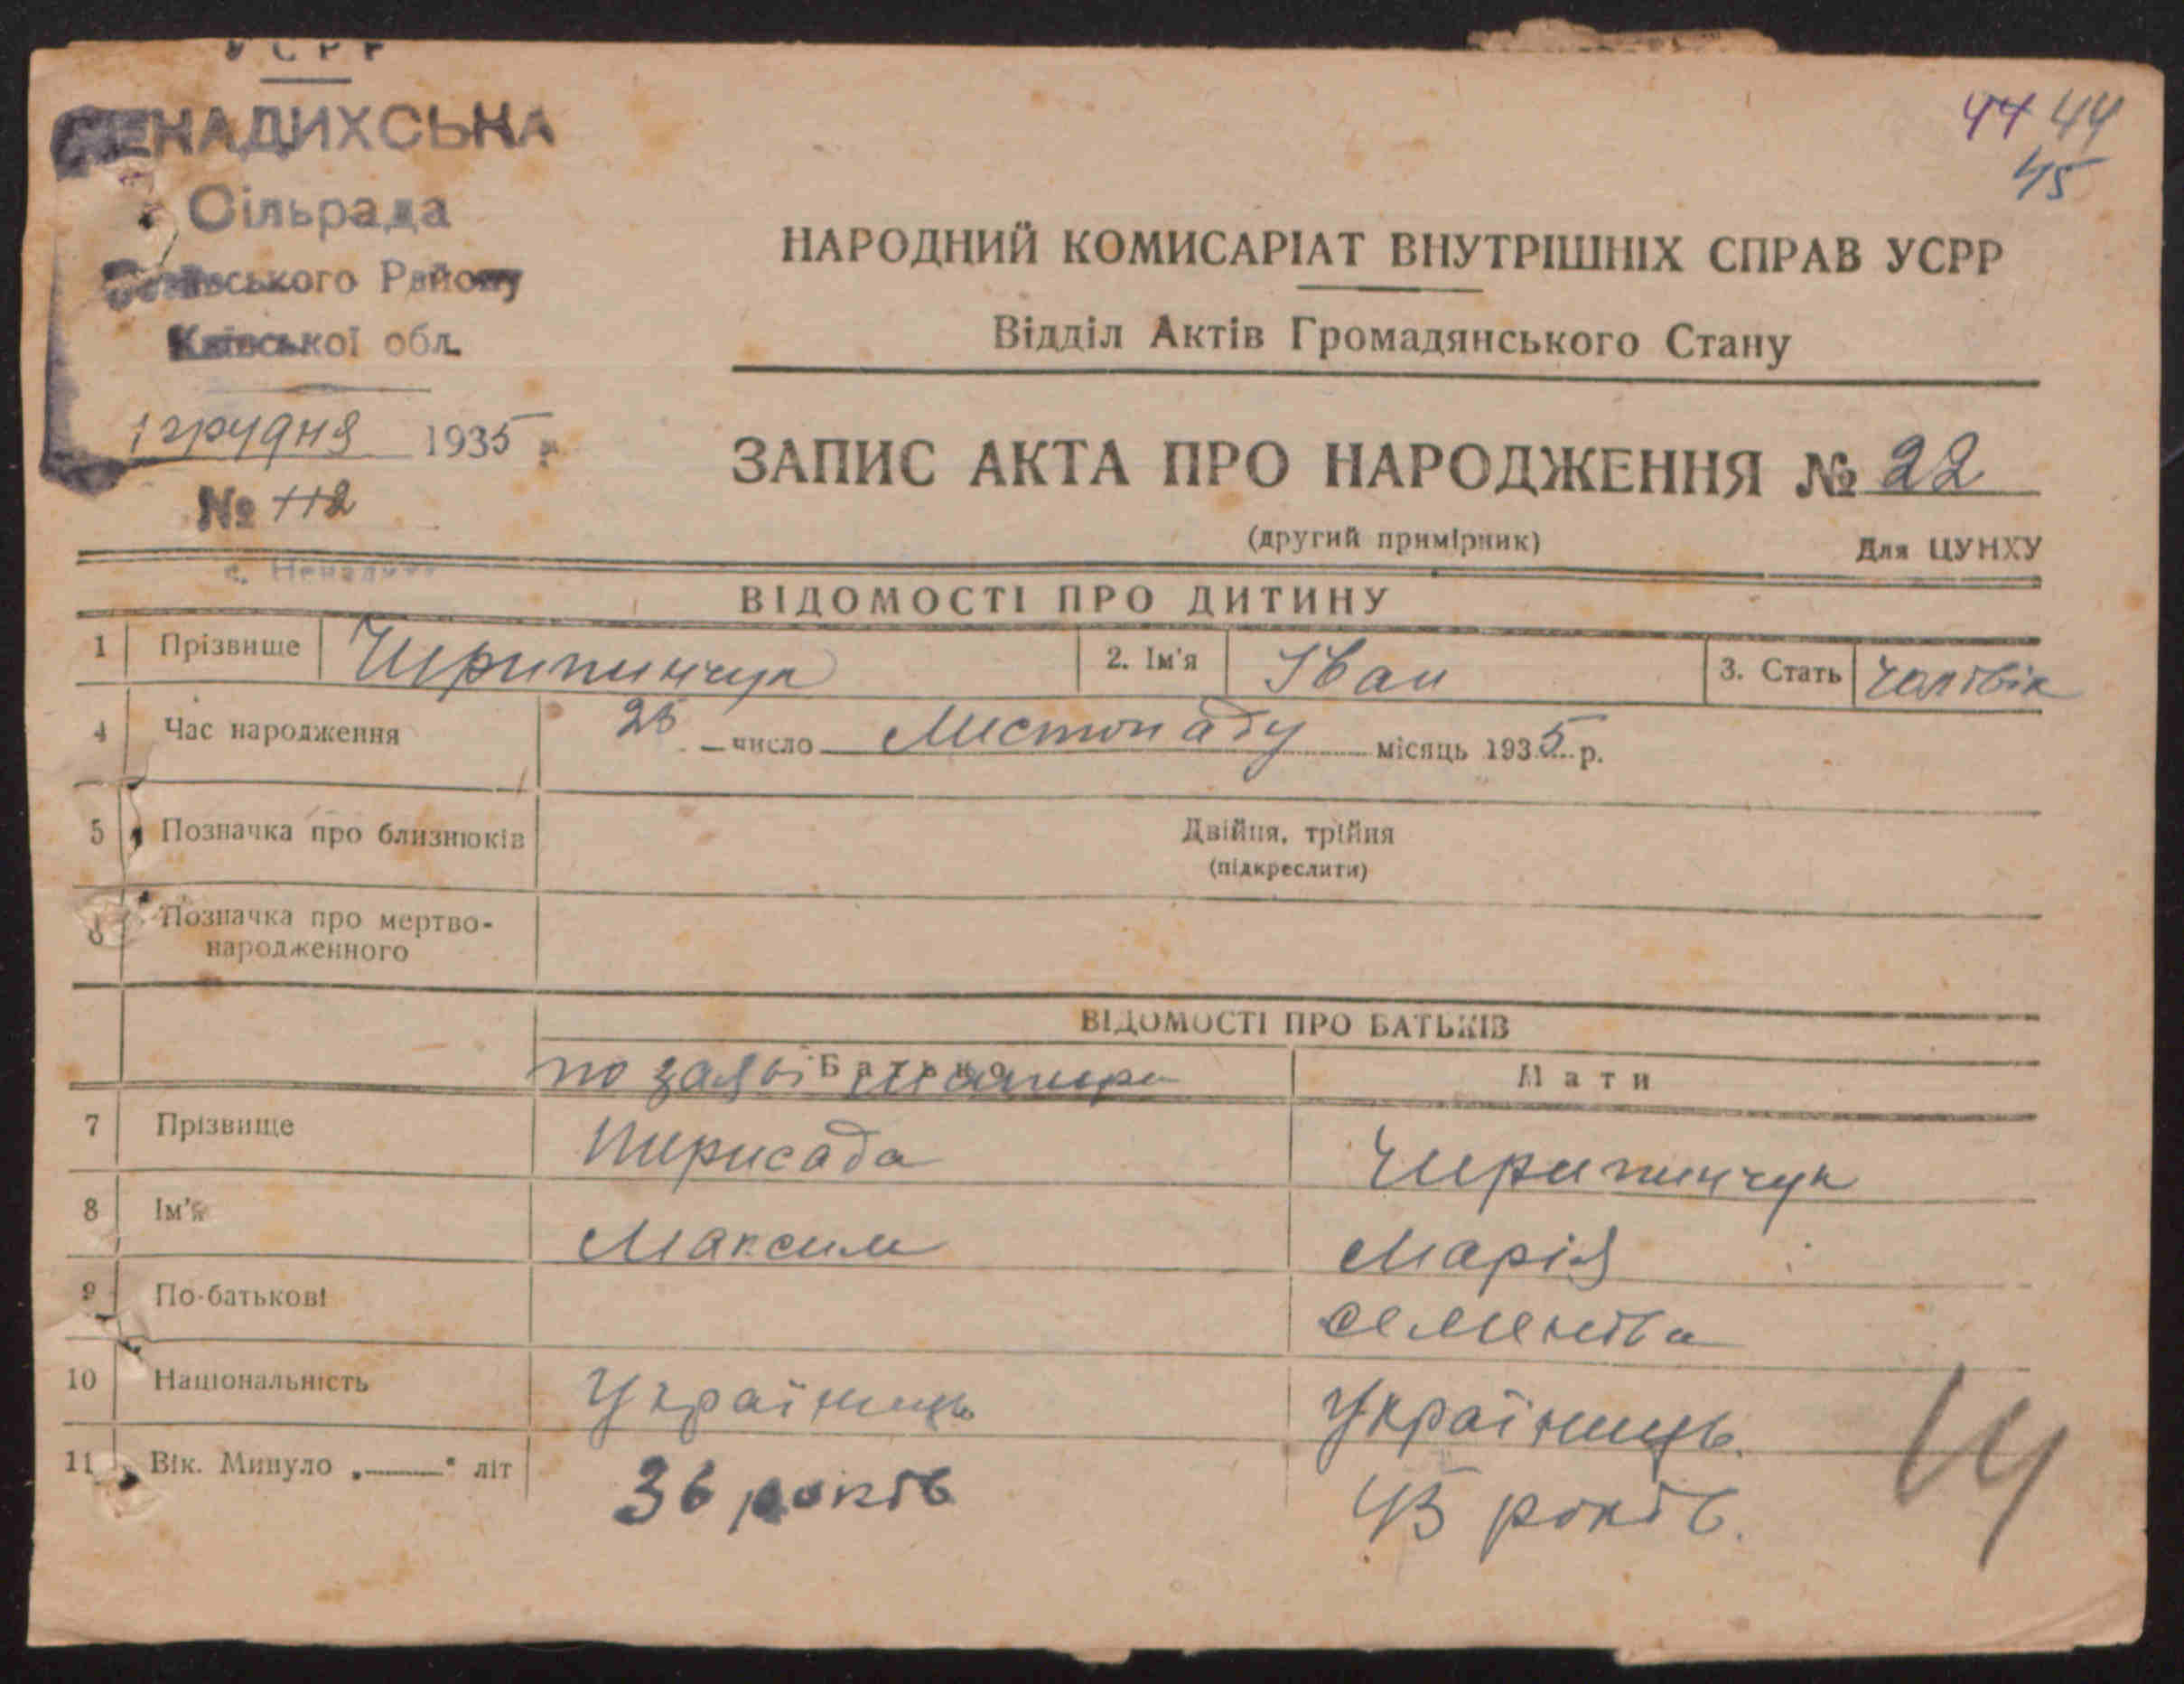 УСРР
НЕНАДИХСЬКА
Сільрада
ського Району
Київської обл.
1 грудня 1935 р.
№ 112
с. Ненадиха
44 44
45
НАРОДНИЙ КОМИСАРІАТ ВНУТРІШНІХ СПРАВ УСРР
Відділ Актів Громадянського Стану
ЗАПИС АКТА ПРО НАРОДЖЕННЯ № 22
(другий примірник) Для ЦУНХУ
ВІДОМОСТІ ПРО ДИТИНУ
1 Прізвище Чирипинчук 2. Ім'я Іван 3. Стать чоловік
4 Час народження 25 число Листопаду місяць 1935 р.
5 Позначка про близнюків Двійня, трійня
(підкреслити)
6 Позначка про мертво-
народженного
ВІДОМОСТІ ПРО БАТЬКІВ
по заяві матери Батько Мати
7 Прізвище Пирисада Чирипинчук
8 Ім'я Максим Марія
9 По-батькові Семенівна
10 Національність Українець Українець.
11 Вік. Минуло „——" літ 36 років 43 років.
14